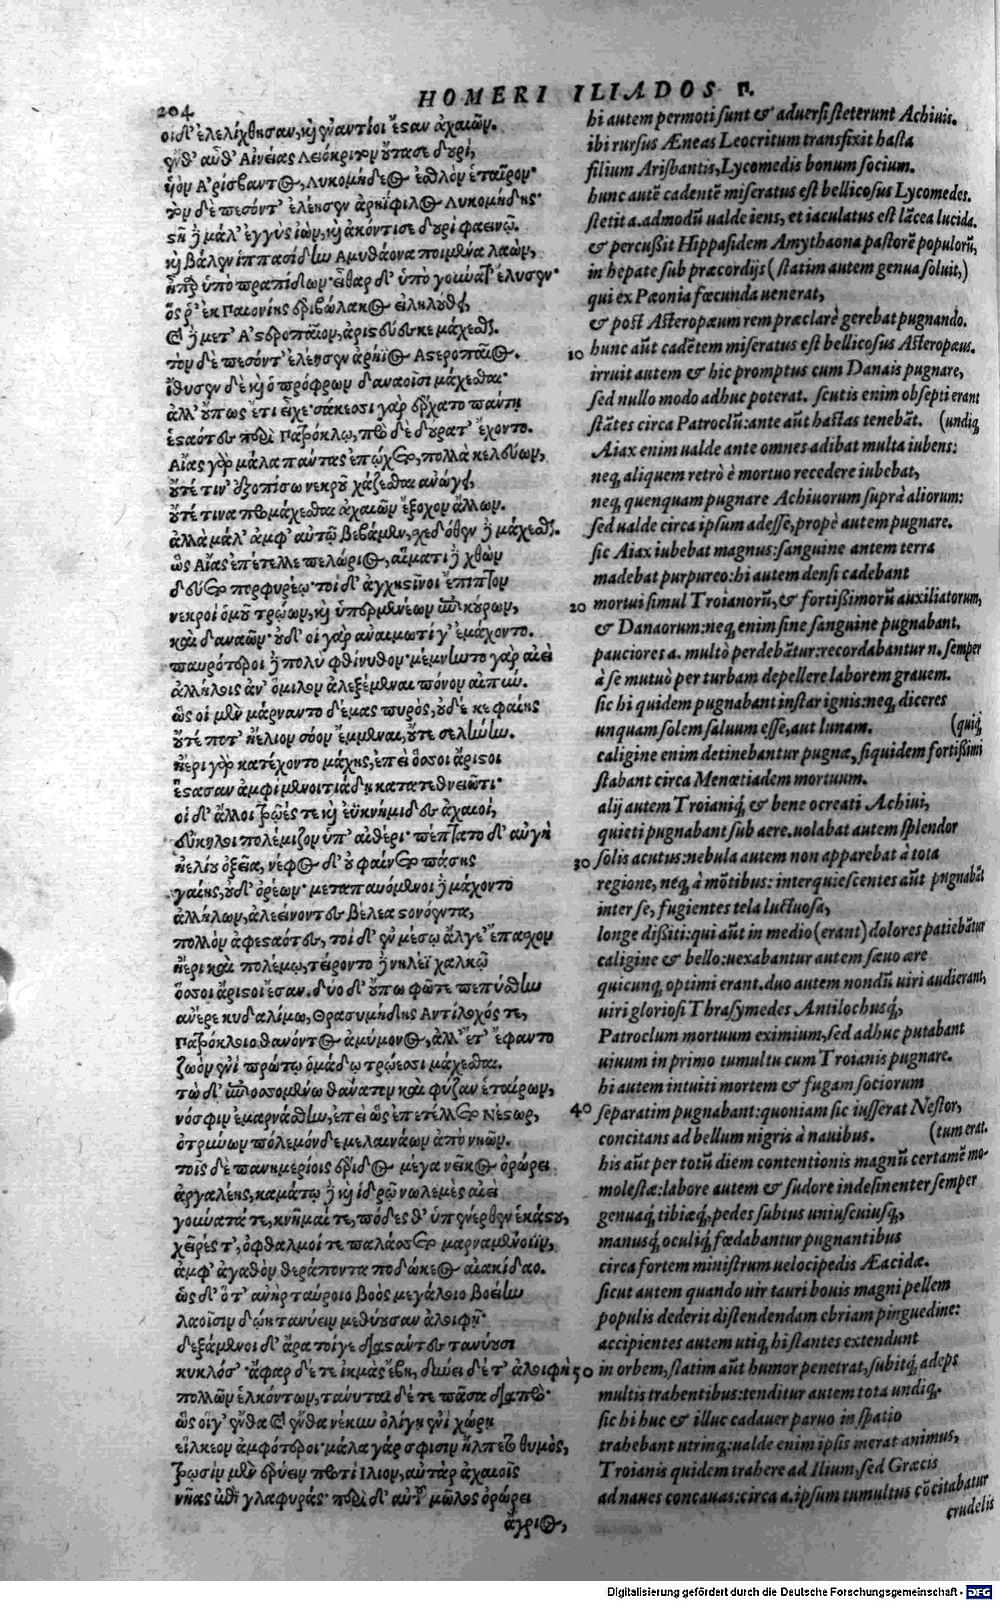 204
HOMERI ILIADOS Ρ.
οἱ δ' ἐλελίχθησαν, καὶ ἐναντίοι ἔσαν ἀχαιῶν.
ἔνθ' αὖθ' Αἰνείας Λειόκριτον οὔτασε δουρί,
ὑὸν Ἀρίσβαντος, Λυκομήδεος ἐσθλὸν ἑταῖρον·
τὸν δὲ πεσόντ' ἐλέησεν ἀρηΐφιλος Λυκομήδης·
στῆ δὲ μάλ' ἐγγὺς ἰὼν, καὶ ἀκόντισε δουρὶ φαεινῷ.
καὶ βάλεν ἱππασίδην Ἀμυθάονα ποιμένα λαῶν,
ἧπαρ ὑπὸ πραπίδων· εἶθαρ δ' ὑπὸ γούνατ' ἔλυσεν·
ὅς ῥ' ἐκ Παιονίης ἐριβώλακος εἰληλούθει,
καὶ δὲ μετ' Ἀστεροπαῖον, ἀριστεύεσκε μάχεσθαι.
τὸν δὲ πεσόντ' ἐλέησεν ἀρήϊος Ἀστεροπαῖος.
ἴθυσεν δὲ καὶ ὁ πρόφρων δαναοῖσι μάχεσθαι·
ἀλλ' οὔπως ἔτι εἶχε· σάκεσσι γὰρ ἔρχατο πάντη
ἑσταότες περὶ Πατρόκλῳ, πρὸ δὲ δούρατ' ἔχοντο.
Αἴας γὰρ μάλα πάντας ἐπῴχετο, πολλὰ κελεύων,
οὔτέ τιν' ἐξοπίσω νεκροῦ χάζεσθαι ἀνώγει,
οὔτέ τινα προμάχεσθαι ἀχαιῶν ἔξοχον ἄλλων.
ἀλλὰ μάλ' ἀμφ' αὐτῷ βεβάμεν, σχεδόθεν δὲ μάχεσθαι.
ὣς Αἴας ἐπέτελλε πελώριος, αἵματι δὲ χθὼν
δεύετο πορφυρέῳ· τοὶ δ' ἀγχηστῖνοι ἔπιπτον
νεκροὶ ὁμοῦ τρώων, καὶ ὑπερμενέων ἐπικούρων,
καὶ δαναῶν· οὐδ' οἱ γὰρ ἀναιμωτί γ' ἐμάχοντο.
παυρότεροι δὲ πολὺ φθίνυθον· μέμνηντο γὰρ αἰεὶ
ἀλλήλοις ἀν' ὅμιλον ἀλεξέμεναι πόνον αἰπύν.
ὣς οἱ μὲν μάρναντο δέμας πυρός, οὐδέ κε φαίης
οὔτέ ποτ' ἠέλιον σόον ἔμμεναι, οὔτε σελήνην.
ἠέρι γὰρ κατέχοντο μάχης, ἐπὶ ὅσσοι ἄριστοι
ἕστασαν ἀμφὶ μενοιτιάδῃ κατατεθνειῶτι·
οἱ δ' ἄλλοι τρῶές τε καὶ ἐϋκνήμιδες ἀχαιοί,
εὔκηλοι πολέμιζον ὑπ' αἰθέρι· πέπτατο δ' αὐγὴ
ἠελίου ὀξεῖα, νέφος δ' οὐ φαίνετο πάσης
γαίης, οὐδ' ὀρέων· μεταπαυόμενοι δὲ μάχοντο
ἀλλήλων, ἀλεείνοντες βέλεα στονόεντα,
πολλὸν ἀφεσταότες, τοὶ δ' ἐν μέσῳ ἄλγε' ἔπασχον
ἠέρι καὶ πολέμῳ, τείροντο δὲ νηλέϊ χαλκῷ
ὅσσοι ἄριστοι ἔσαν. δύο δ' οὔπω φῶτε πεπύσθην
ἀνέρε κυδαλίμω, Θρασυμήδης Ἀντίλοχός τε,
Πατρόκλοιο θανόντος ἀμύμονος, ἀλλ' ἔτ' ἔφαντο
ζωὸν ἐνὶ πρώτῳ ὁμάδῳ τρώεσσι μάχεσθαι.
τὼ δ' ἐπιοσσομένω θάνατον καὶ φύζαν ἑταίρων,
νόσφιν ἐμαρνάσθην, ἐπεὶ ὣς ἐπετέλλετο Νέστωρ,
ὀτρύνων πόλεμόνδε μελαινάων ἀπὸ νηῶν.
τοῖς δὲ πανημερίοις ἔριδος μέγα νεῖκος ὀρώρει
ἀργαλέης, καμάτῳ δὲ καὶ ἱδρῷ νωλεμὲς αἰεὶ
γούνατά τε, κνῆμαί τε, πόδες θ' ὑπένερθεν ἑκάστου,
χεῖρές τ', ὀφθαλμοί τε παλάσσετο μαρναμένοιϊν,
ἀμφ' ἀγαθὸν θεράποντα ποδώκεος αἰακίδαο.
ὡς δ' ὅτ' ἀνὴρ ταύροιο βοὸς μεγάλοιο βοείην
λαοῖσιν δώῃ τανύειν μεθύουσαν ἀλοιφῇ·
δεξάμενοι δ' ἄρα τοίγε διαστάντες τανύουσι
κυκλόσ'· ἄφαρ δέ τε ἰκμὰς ἔβη, δύνει δέ τ' ἀλοιφὴ
πολλῶν ἑλκόντων, τάνυται δέ τε πᾶσα διαπρό·
ὣς οἵγ' ἔνθα καὶ ἔνθα νέκυν ὀλίγῃ ἐνὶ χώρῃ
εἵλκεον ἀμφότεροι· μάλα γάρ σφισιν ἤλπετο θυμὸς,
τρωσὶν μὲν ἐρύειν προτὶ Ἴλιον, αὐτὰρ ἀχαιοῖς
νῆας ἐπὶ γλαφυράς· περὶ δ' αὐτοῦ μῶλος ὀρώρει
ἄγριος,
hi autem permoti sunt & aduersi steterunt Achiuis.
ibi rursus Æneas Leocritum transfixit hasta
filium Arisbantis, Lycomedis bonum socium.
hunc autē cadentē miseratus est bellicosus Lycomedes.
stetit a. admodū ualde iens, et iaculatus est lācea lucida.
& percußit Hippasidem Amythaona pastorē populorū,
in hepate sub præcordijs (statim autem genua soluit,)
qui ex Pæonia fœcunda uenerat,
& post Asteropæum rem præclarè gerebat pugnando.
10 hunc aūt cadētem miseratus est bellicosus Asteropæus.
irruit autem & hic promptus cum Danais pugnare,
sed nullo modo adhuc poterat. scutis enim obsepti erant
stātes circa Patroclū: ante aūt hastas tenebāt. (undiq;
Aiax enim ualde ante omnes adibat multa iubens:
neq; aliquem retrò è mortuo recedere iubebat,
neq; quenquam pugnare Achiuorum suprà aliorum:
sed ualde circa ipsum adesse, propè autem pugnare.
sic Aiax iubebat magnus: sanguine autem terra
madebat purpureo: hi autem densi cadebant
20 mortui simul Troianorū, & fortißimorū auxiliatorum,
& Danaorum: neq; enim sine sanguine pugnabant.
pauciores a. multò perdebātur: recordabantur n. semper
à se mutuò per turbam depellere laborem grauem.
sic hi quidem pugnabant instar ignis: neq; diceres
unquam solem saluum esse, aut lunam. (quiq;
caligine enim detinebantur pugnæ, siquidem fortißimi
stabant circa Menœtiadem mortuum.
alij autem Troianiq́; & bene ocreati Achiui,
quieti pugnabant sub aere. uolabat autem splendor
30 solis acutus: nebula autem non apparebat à tota
regione, neq; à mōtibus: interquiescentes aūt pugnabāt
inter se, fugientes tela luctuosa,
longe dißiti: qui aūt in medio (erant) dolores patiebātur
caligine & bello: uexabantur autem sæuo ære
quicunq; optimi erant. duo autem nondū uiri audierant,
uiri gloriosi Thrasymedes Antilochusq́;,
Patroclum mortuum eximium, sed adhuc putabant
uiuum in primo tumultu cum Troianis pugnare.
hi autem intuiti mortem & fugam sociorum
40 separatim pugnabant: quoniam sic iusserat Nestor,
concitans ad bellum nigris à nauibus. (tum erat.
his aūt per totū diem contentionis magnū certamē mo-
molestæ: labore autem & sudore indesinenter semper
genuaq́; tibiæq́;, pedes subtus uniuscuiusq;,
manusq́; oculiq́; fœdabantur pugnantibus
circa fortem ministrum uelocipedis Æacidæ.
sicut autem quando uir tauri bouis magni pellem
populis dederit distendendam ebriam pinguedine:
accipientes autem utiq; hi stantes extendunt
50 in orbem, statim aūt humor penetrat, subitq́; adeps
multis trahentibus: tenditur autem tota undiq;.
sic hi huc & illuc cadauer paruo in spatio
trahebant utrinq;: ualde enim ipsis inerat animus,
Troianis quidem trahere ad Ilium, sed Græcis
ad naues concauas: circa a. ipsum tumultus cōcitabatur
crudelis
Digitalisierung gefördert durch die Deutsche Forschungsgemeinschaft - DFG